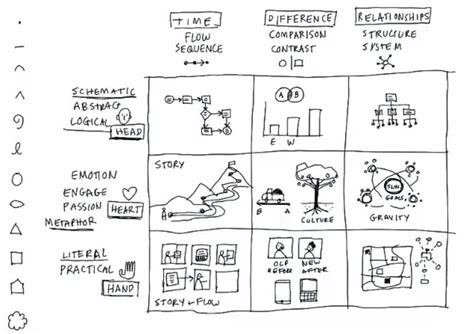 TIME
FLOW
SEQUENCE
DIFFERENCE
COMPARISON
CONTRAST
RELATIONSHIPS
STRUCTURE
SYSTEM
SCHEMATIC
ABSTRACT
LOGICAL
HEAD
A B
E W
EMOTION
ENGAGE
PASSION
METAPHOR
HEART
STORY
B A
CULTURE
SUN
GOALS
GRAVITY
LITERAL
PRACTICAL
HAND
STORY FLOW
OLD
BEFORE
NEW
AFTER